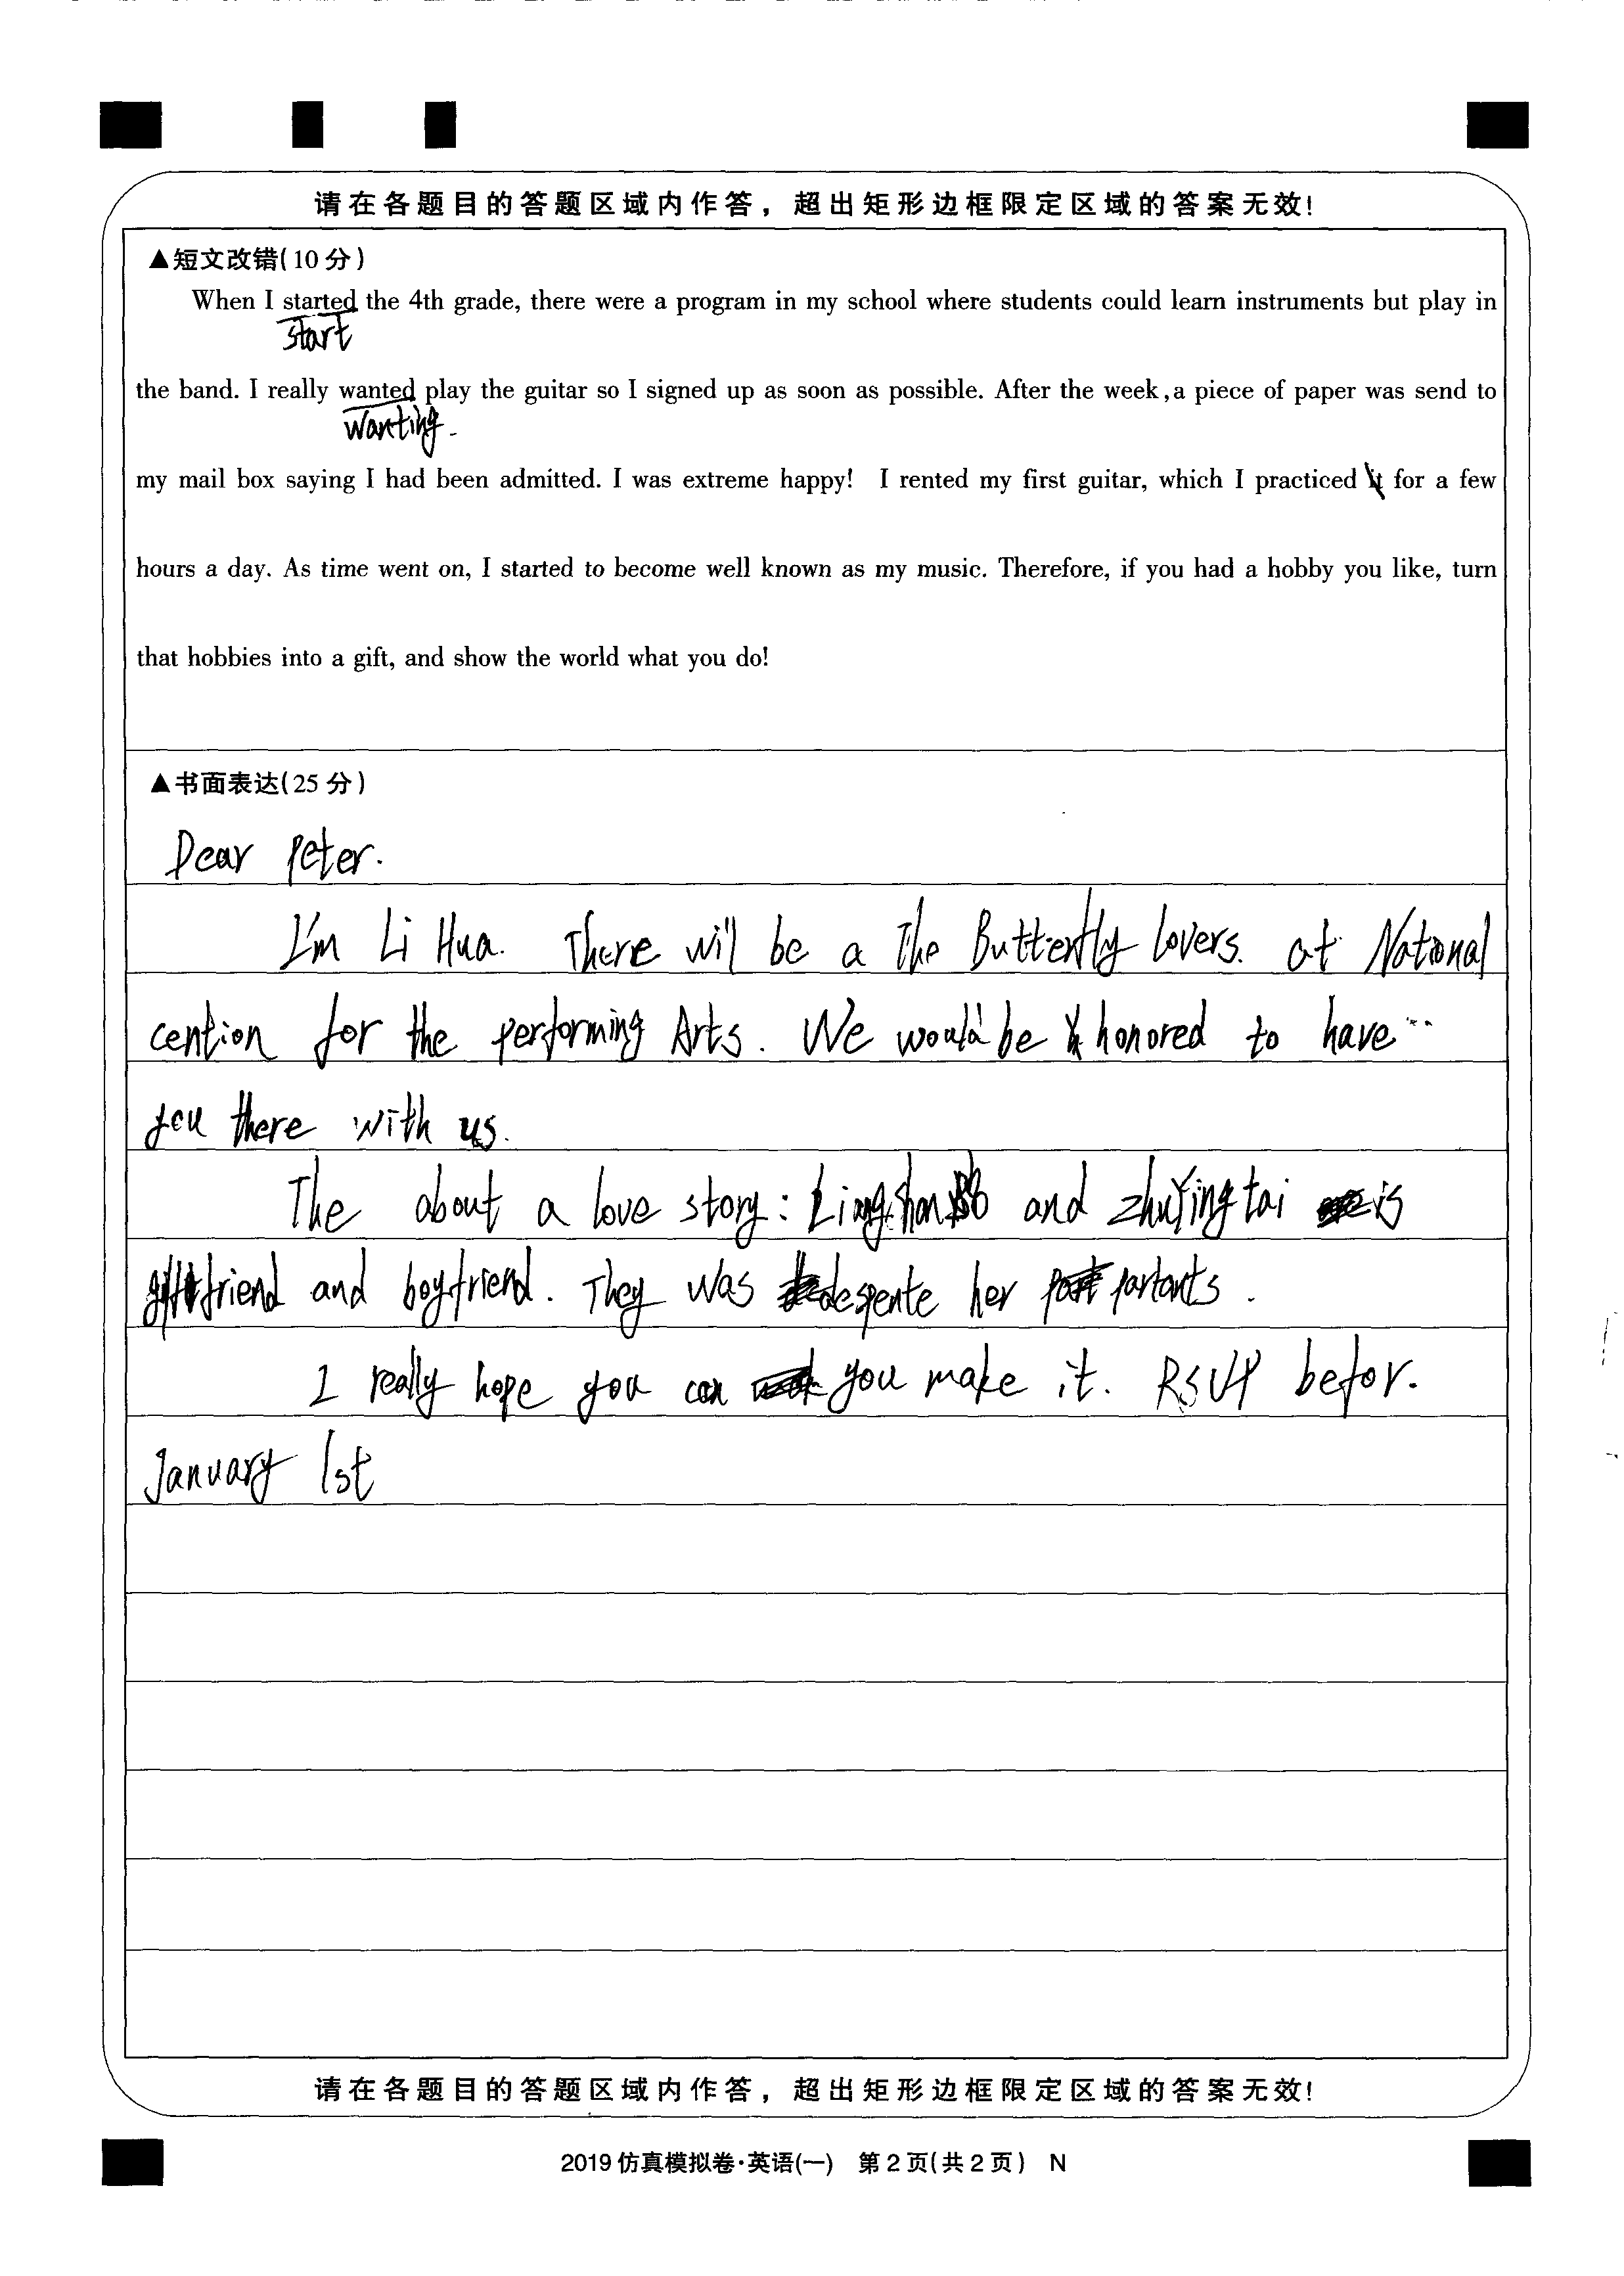 请在各题目的答题区域内作答，超出矩形边框限定区域的答案无效!
▲短文改错(10分)
When I started the 4th grade, there were a program in my school where students could learn instruments but play in
start
the band. I really wanted play the guitar so I signed up as soon as possible. After the week, a piece of paper was send to
Wanting.
my mail box saying I had been admitted. I was extreme happy! I rented my first guitar, which I practiced it for a few
hours a day. As time went on, I started to become well known as my music. Therefore, if you had a hobby you like, turn
that hobbies into a gift, and show the world what you do!
▲书面表达(25分)
Dear Peter.
I'm Li Hua. There will be a The Butterfly lovers. at National
cention for the performing Arts. We would be honored to have
you there with us.
The about a love story: and zhuYingtai is
and boyfriend. They was despente her partants.
I really hope you can you make it. RSVP befor.
January 1st
请在各题目的答题区域内作答，超出矩形边框限定区域的答案无效!
2019仿真模拟卷·英语(一) 第2页(共2页) N